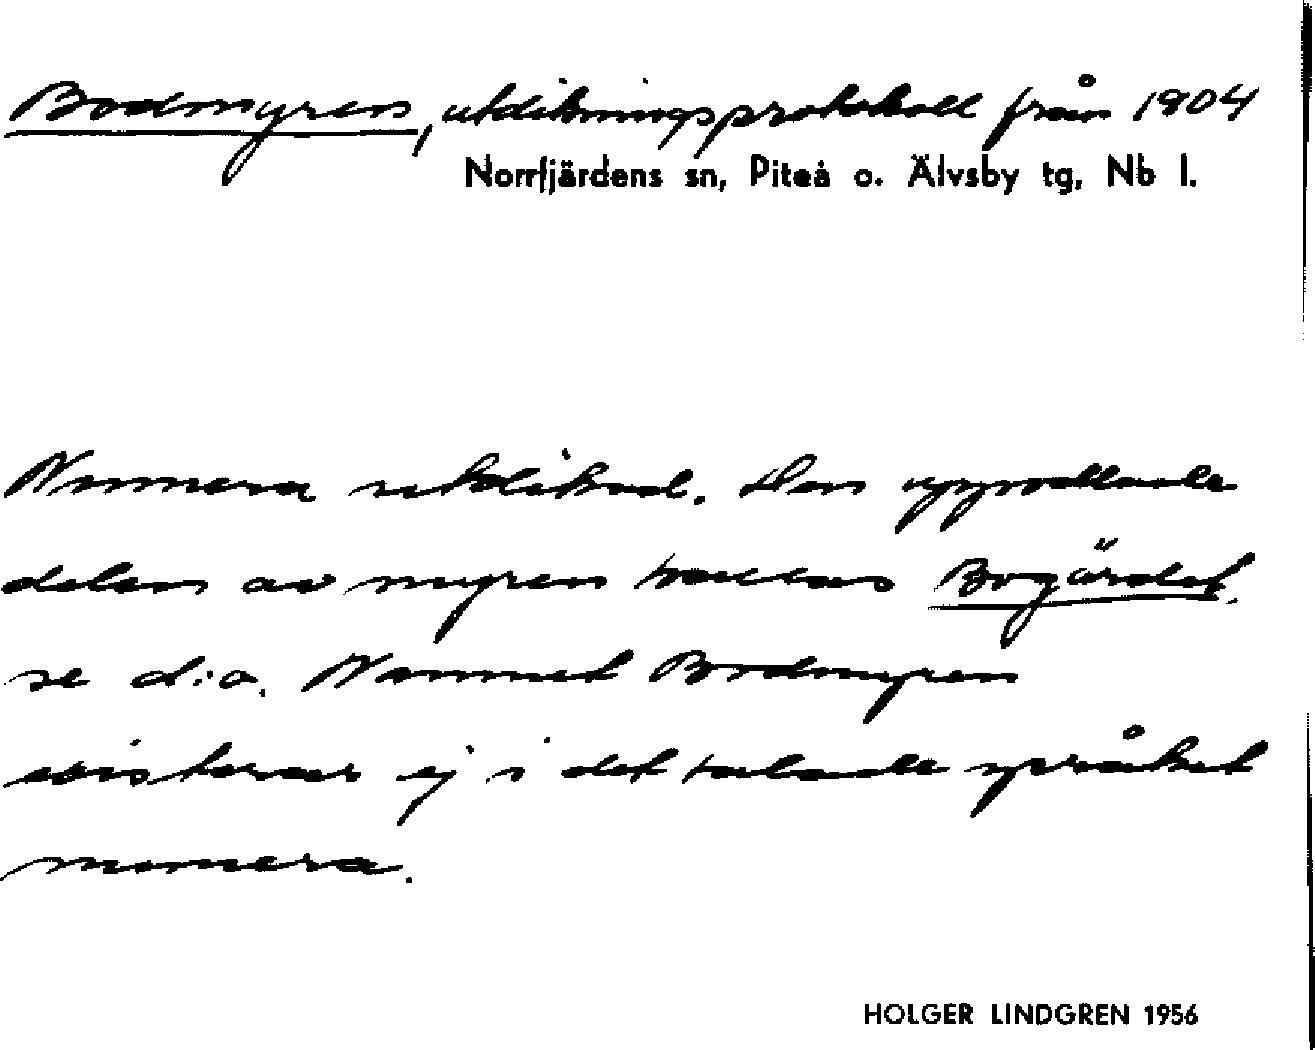 Bodmyren, utdikningsprotokoll från 1904
Norrfjärdens sn, Piteå o. Älvsby tg, Nb l.
Numera utdikad. Den uppodlade
delen av myren kallas Bogärdet.
se d:o. Namnet Bodmyren
existerar ej i det talade språket
numera.
HOLGER LINDGREN 1956